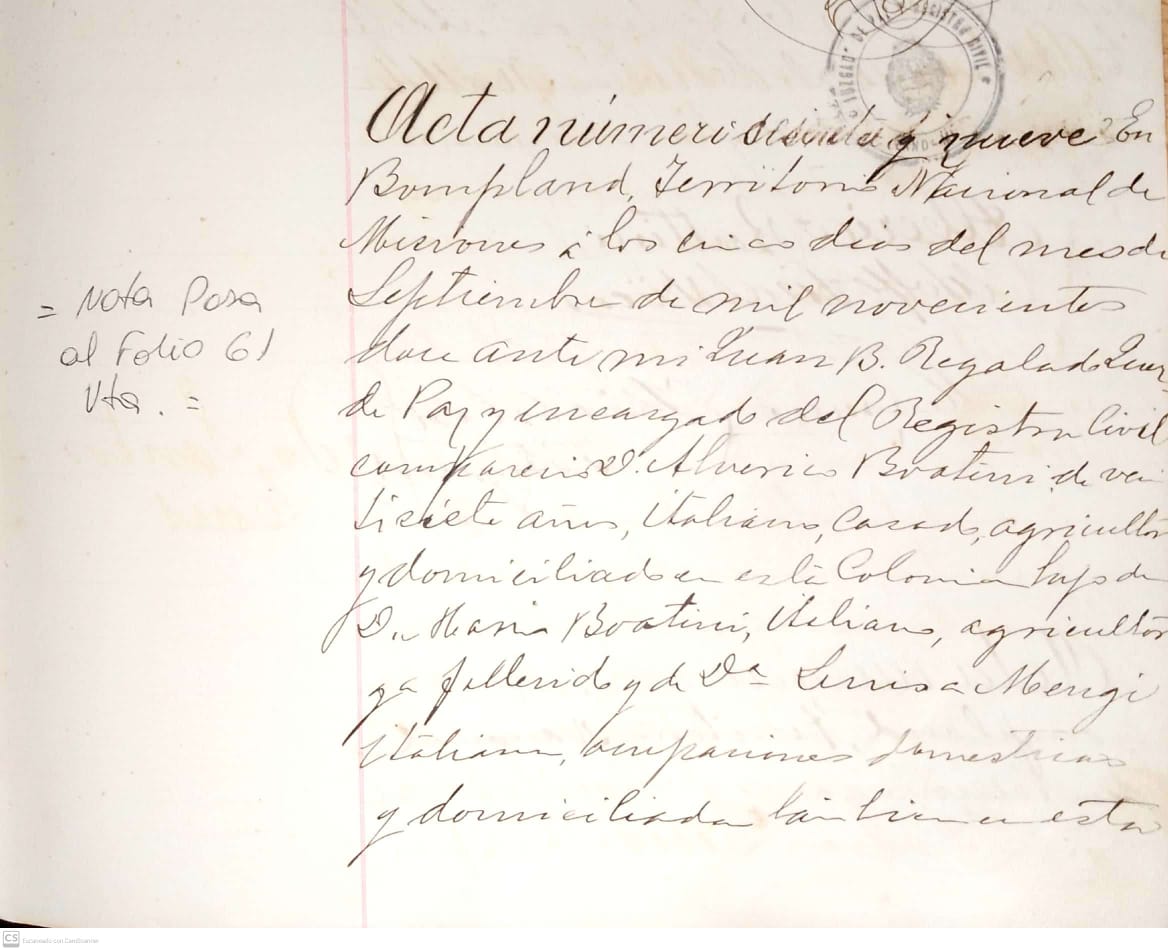 JUZGADO DE PAZ REGISTRO CIVIL
Acta número sesenta y nueve En
Bompland, Territorio Nacional de
Misiones á los cinco dias del mes de
Septiembre de mil novecientos
doce ante mi Juan B. Regalado Juez
de Paz y encargado del Registro Civil
comparecio D. Alverico Boatini de vein
tisiete años, italiano, casado, agricultor
y domiciliado en esta Colonia hijo de
Dn Mario Boatini, italiano, agricultor
ya fallecido y de Dª Luisa Mengi
italiana, ocupaciones domesticas
y domiciliada tambien en esta
= Nota Pasa
al Folio 61
Vta. =
CS Escaneado con CamScanner